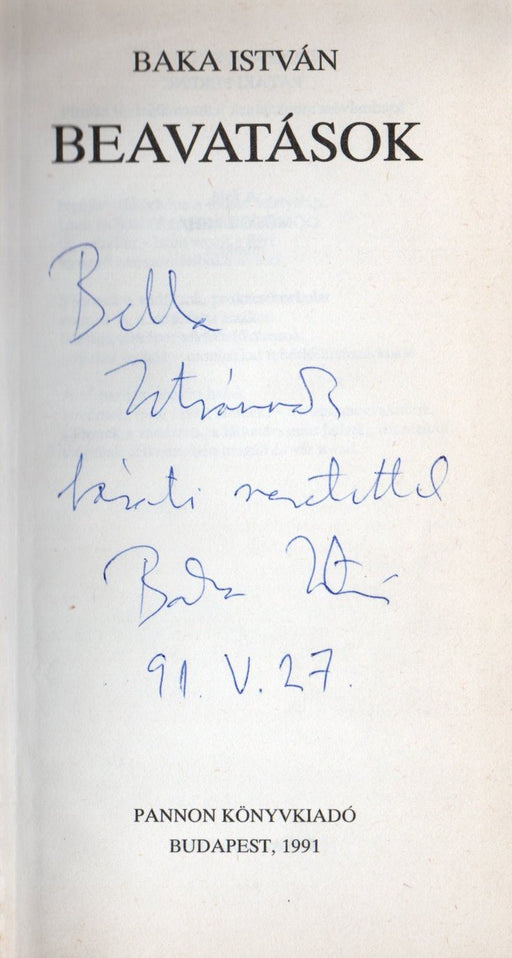 BAKA ISTVÁN
BEAVATÁSOK
Bella
Istvánnak
baráti szeretettel
Baka István
91. V. 27.
PANNON KÖNYVKIADÓ
BUDAPEST, 1991